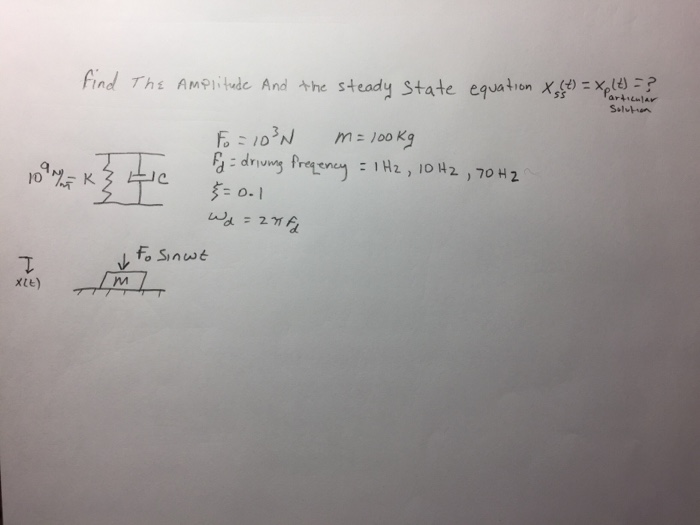 find The Amplitude And the steady State equation Xss(t) = Xp(t) = ?
Particular
Solution
F₀ = 10³N m = 100 Kg
fd = driving freqency = 1 Hz, 10 Hz, 70 Hz
10⁹ N/m = K C
ξ = 0.1
ωd = 2πfd
F₀ Sinωt
X(t) m